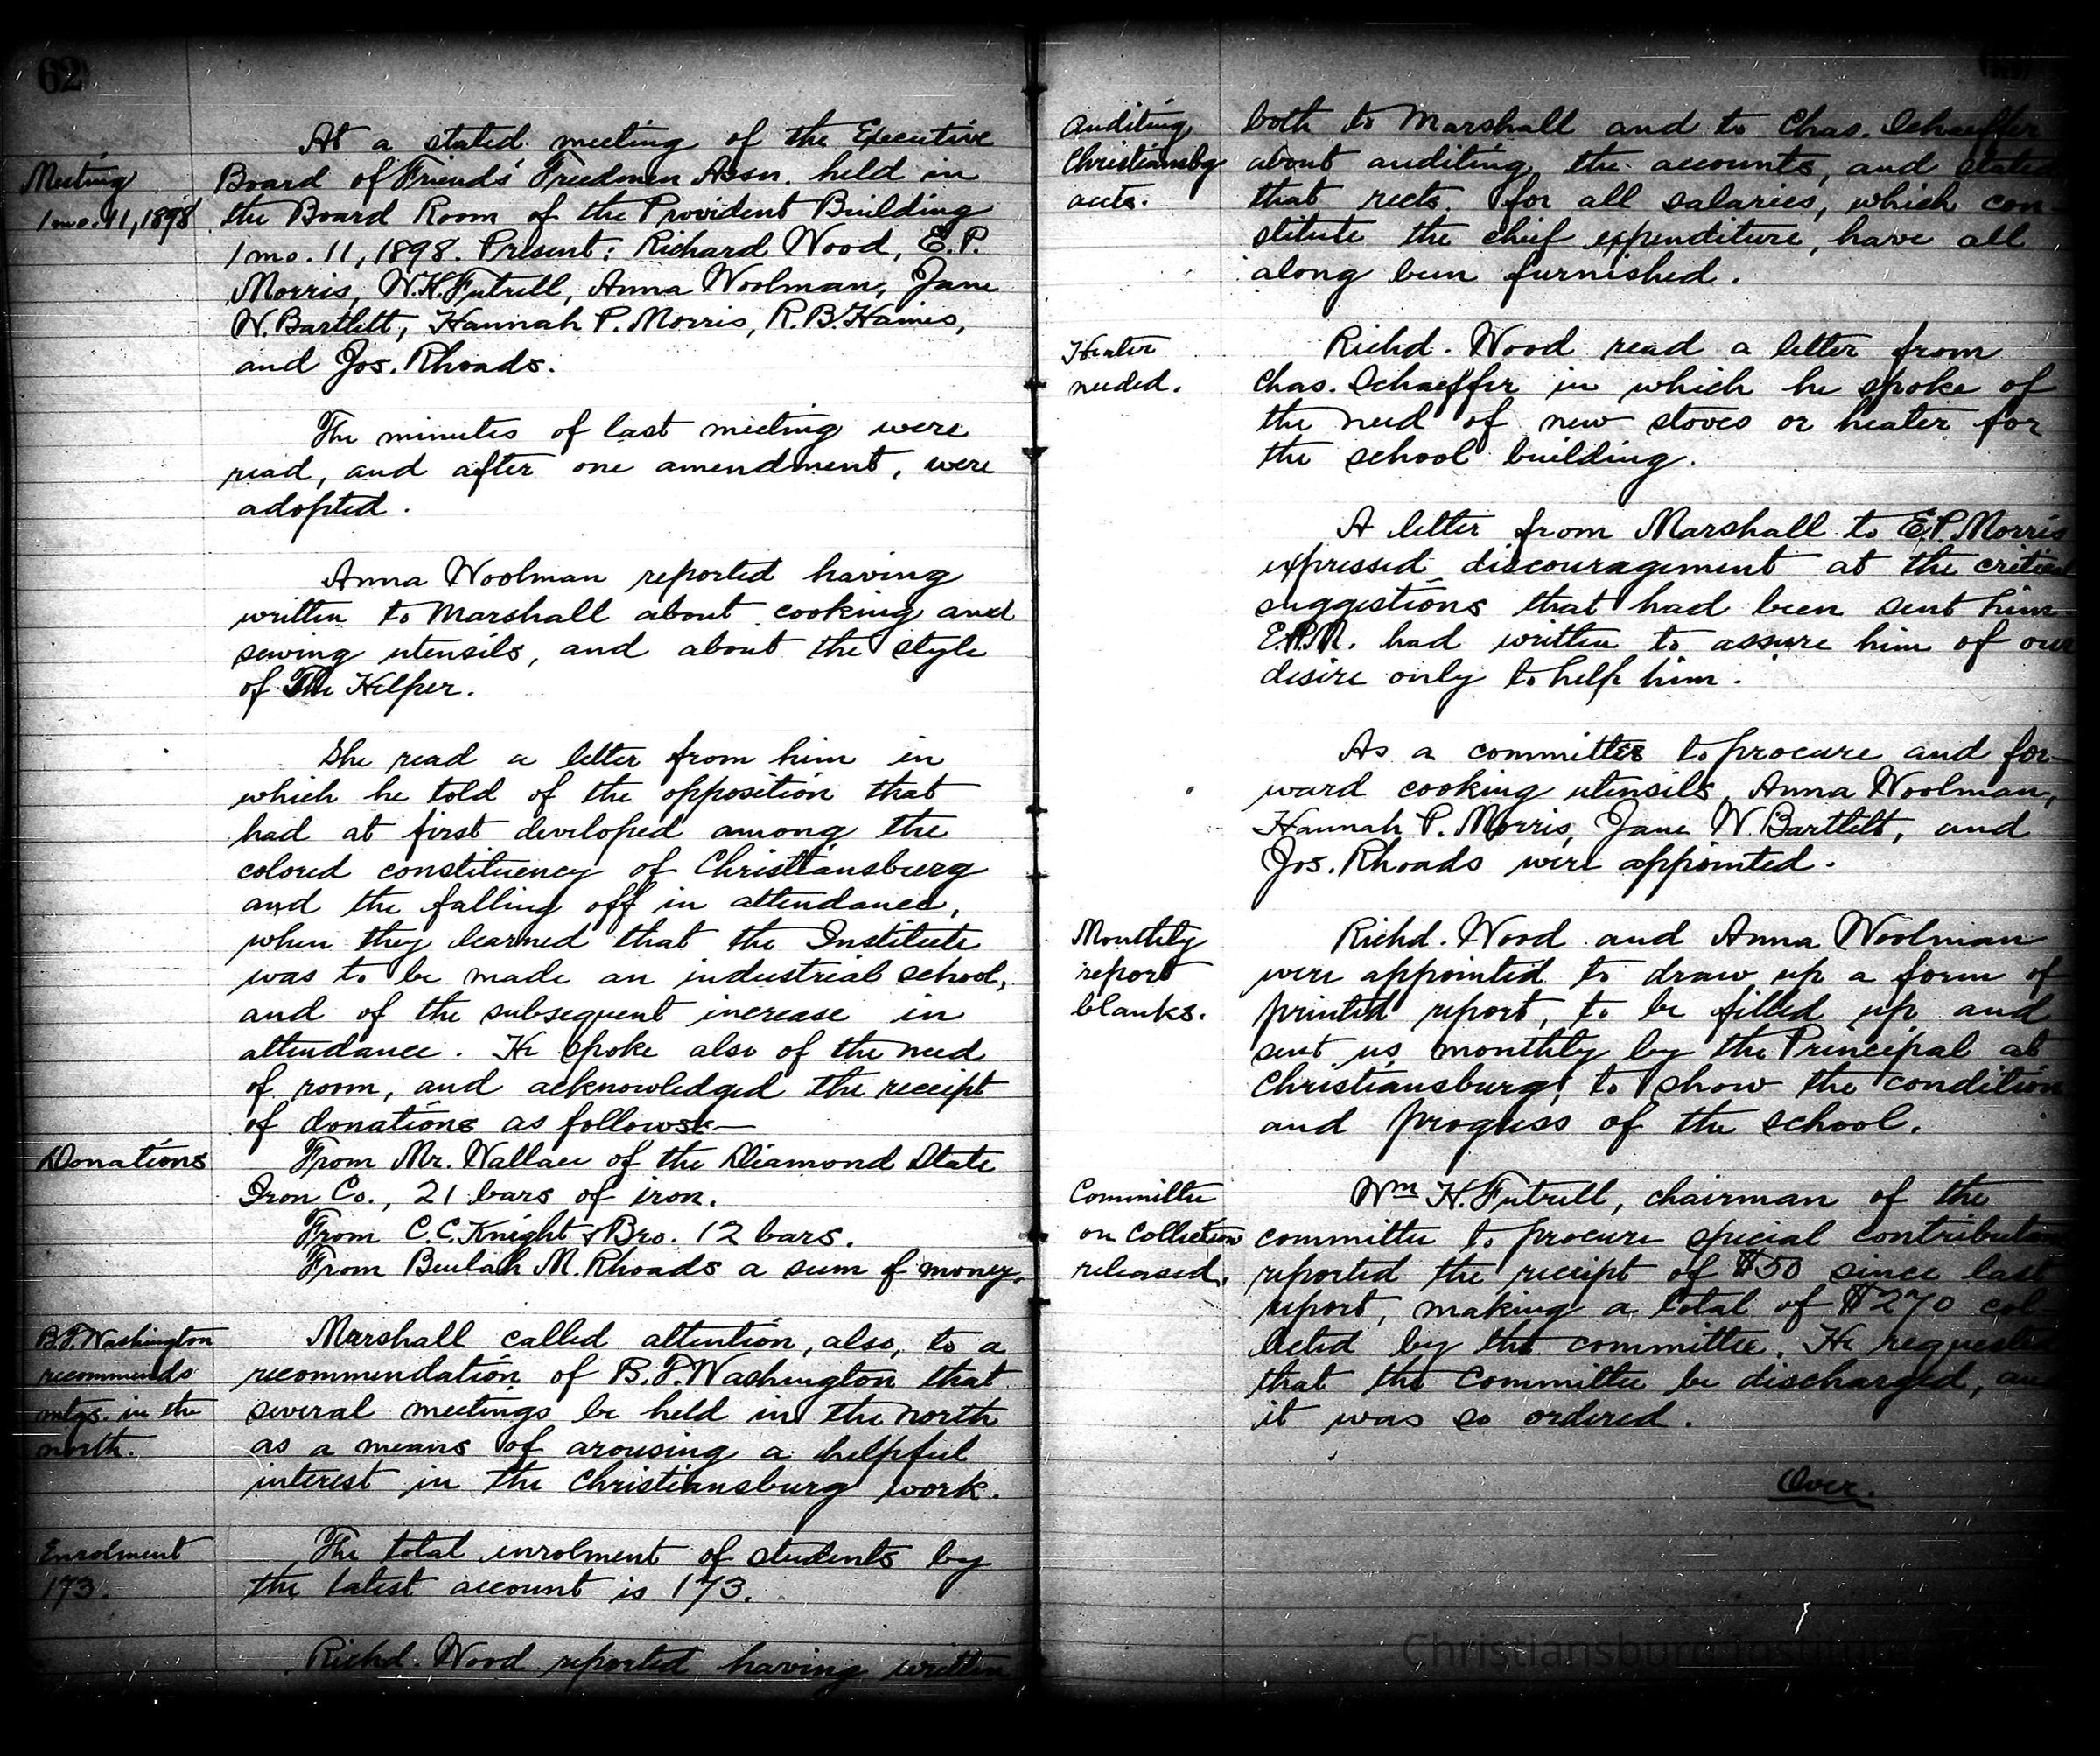 62
At a stated meeting of the Executive
Meeting
Board of Friends' Freedmen Assn. held in
1 mo. 11, 1898
the Board Room of the Provident Building
1 mo. 11, 1898. Present: Richard Wood, E.P.
Morris, W.H. Futrell, Anna Woolman, Jane
W. Bartlett, Hannah P. Morris, R.B. Haines,
and Jos. Rhoads.
The minutes of last meeting were
read, and after one amendment, were
adopted.
Anna Woolman reported having
written to Marshall about cooking and
sewing utensils, and about the style
of The Helper.
She read a letter from him in
which he told of the opposition that
had at first developed among the
colored constituency of Christiansburg
and the falling off in attendance,
when they learned that the Institute
was to be made an industrial school,
and of the subsequent increase in
attendance. He spoke also of the need
of room, and acknowledged the receipt
of donations as follows:—
Donations
From Mr. Wallace of the Diamond State
Iron Co., 21 bars of iron.
From C.C. Knight & Bro. 12 bars.
From Beulah M. Rhoads a sum of money.
B.T. Washington
recommends
mtgs. in the
north.
Marshall called attention, also, to a
recommendation of B.T. Washington that
several meetings be held in the north
as a means of arousing a helpful
interest in the Christiansburg work.
Enrolment
173.
The total enrolment of students by
the latest account is 173.
Richd. Wood reported having written
Auditing
Christiansbg
accts.
both to Marshall and to Chas. Schaeffer
about auditing the accounts, and stated
that rects. for all salaries, which con-
stitute the chief expenditure, have all
along been furnished.
Heater
needed.
Richd. Wood read a letter from
Chas. Schaeffer in which he spoke of
the need of new stoves or heater for
the school building.
A letter from Marshall to E.P. Morris
expressed discouragement at the critical
suggestions that had been sent him.
E.P.M. had written to assure him of our
desire only to help him.
As a committee to procure and for-
ward cooking utensils, Anna Woolman,
Hannah P. Morris, Jane W. Bartlett, and
Jos. Rhoads were appointed.
Monthly
report
blanks.
Richd. Wood and Anna Woolman
were appointed to draw up a form of
printed report, to be filled up and
sent us monthly by the Principal at
Christiansburg, to show the condition
and progress of the school.
Committee
on Collection
released.
Wm H. Futrell, chairman of the
committee to procure special contributions
reported the receipt of $50 since last
report, making a total of $270 col-
lected by the committee. He requested
that the Committee be discharged, and
it was so ordered.
Over.
Christiansburg